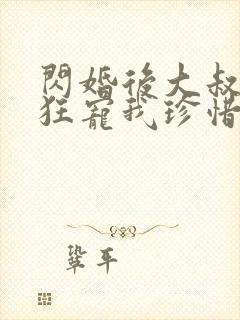 閃婚後大叔
狂寵我珍惜
鞏平